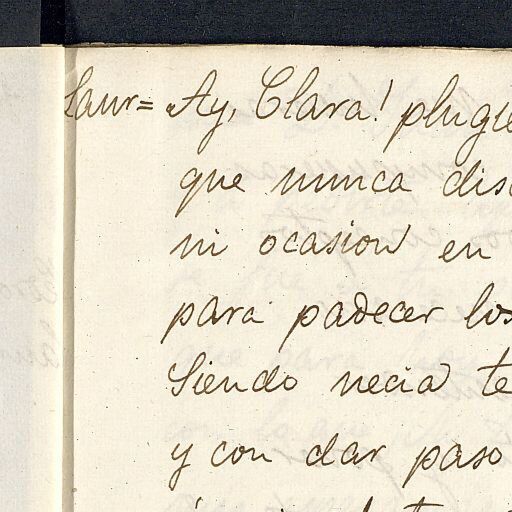 Laur= Ay, Clara! plugie
que nunca dis
ni ocasion en
para padecer los
Siendo necia te
y con dar paso